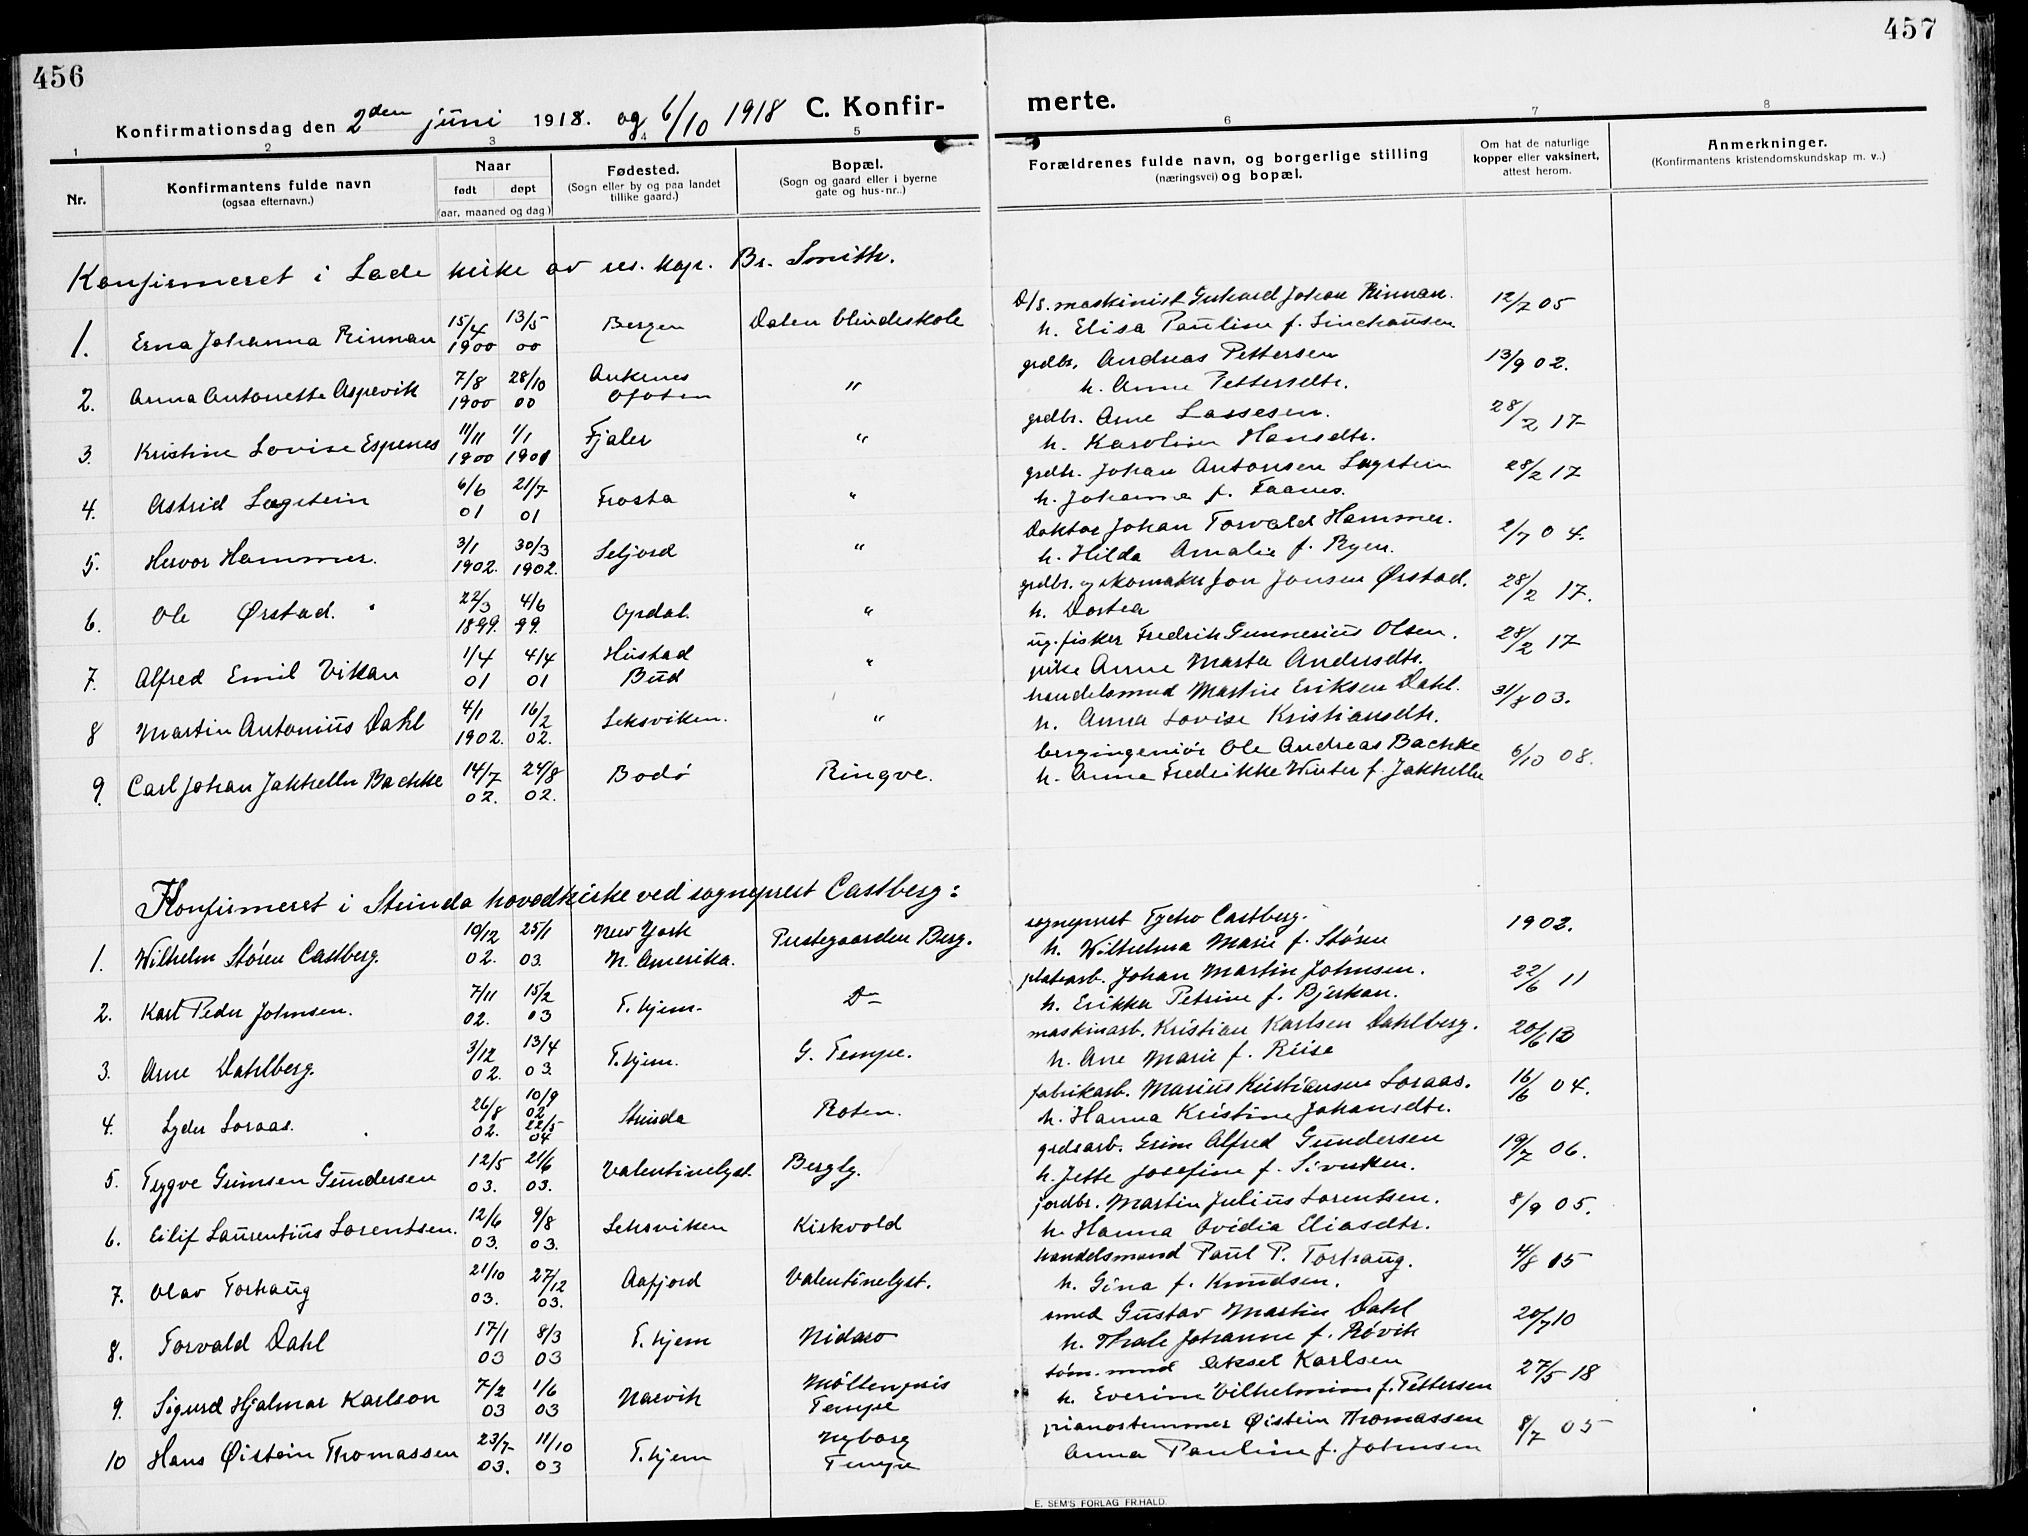 456
457
Konfirmationsdag den 2den juni 1918. og 6/10 1918 C. Konfir-
merte.
1 2 3 4 5 6 7 8
Nr.
Konfirmantens fulde navn
(ogsaa efternavn.)
Naar
født døpt
(aar, maaned og dag)
Fødested.
(Sogn eller by og paa landet
tillike gaard.)
Bopæl.
(Sogn og gaard eller i byerne
gate og hus-nr..)
Forældrenes fulde navn, og borgerlige stilling
(næringsvei) og bopæl.
Om hat de naturlige
kopper eller vaksinert,
attest herom.
Anmerkninger.
(Konfirmantens kristendomskundskap m. v..)
Konfirmeret i Lade kirke av res. kap. Br. Smith.
1. Erna Johanna Rinnan 15/4 1900 13/5 00 Bergen Dalen blindeskole
D/S. maskinist Johan Rinnan. 12/7 05
h. Elisa Pauline f.
2. Anna Antonette Aspevik 7/8 1900 28/10 00 Ankenes Ofoten "
grdbr. Andreas Pettersen 13/9 02.
h. Anne Pettersdtr.
3. Kristine Lovise Espenes 11/11 1900 1/1 1901 Fjaler "
grdbr. Arne Lassesen. 28/2 17
h. Karoline Hansdtr.
4. Astrid Løgstein 6/6 01 21/7 01 Frosta "
grdbr. Johan Antonsen Løgstein 28/2 17
h. Johanna f. Faanes.
5. Hervor Hammer. 3/1 1902. 30/3 1902. Seljord "
Doktor Johan Torvald Hammer. 2/7 04.
h. Hilda Amalie f. Ryen.
6. Ole Ørstad. 22/3 1899. 4/6 99. Opdal. "
grdbr. og skomaker Jon Jonsen Ørstad. 28/2 17.
h. Dortea
7. Alfred Emil Vikan 1/4 01 4/4 01 Hustad Bud "
ug. fisker Fredrik Gunnerius Olsen. 28/2 17
pike Anne Marta Andersdtr.
8 Martin Antonius Dahl 4/1 1902. 16/2 02. Leksviken. "
handelsmand Martin Eriksen Dahl. 31/8 03.
h. Anna Lovise Kristiansdtr.
9. Carl Johan Jakhelln Bachke 14/7 02. 24/8 02. Bodø Ringve.
bergingeniør Ole Andreas Bachke 6/10 08.
h. Anna Fredrikke Winter f. Jakhelln
Konfirmeret i Strinda hovedkirke ved sogneprest Castberg:
1. Wilhelm Støren Castberg. 19/12 02. 25/1 03. New York N. Amerika. Prestegaarden Berg.
sogneprest Tycho Castberg. 1902.
h. Wilhelma Marie f. Støren
2. Karl Peder Johnsen. 7/11 02. 15/2 03 T.hjem. Do
platearb. Johan Martin Johnsen. 22/6 11
h. Erikka Petrine f. Bjerkan.
3. Arne Dahlberg. 3/12 02. 13/4 03. T.hjem. G. Tempe.
maskinarb. Kristian Karlsen Dahlberg. 20/6 13
h. Ane Marie f. Riise
4. Lyder Loraas. 26/8 02. 10/9 02 22/5 04 Strinda Roten.
fabrikarb. Marius Kristiansen Loraas. 16/6 04.
h. Hanna Kristine Johansdtr.
5. Trygve Grimsen Gundersen 12/5 03. 21/6 03. Valentinelyst. Bergly.
grdsarb. Grim Alfred Gundersen 19/7 06.
h. Jette Josefine f. Sivertsen.
6. Eilif Laurentius Lorentsen. 12/6 03. 9/8 03. Leksviken Kirkvold
jordbr. Martin Julius Lorentsen. 8/9 05.
h. Hanna Ovidia Eliasdtr.
7. Olav Torhaug 21/10 03. 27/12 03. Aafjord Valentinelyst.
handelsmand Paul P. Torhaug. 4/8 15
h. Gina f. Knudsen.
8. Torvald Dahl 17/1 03 8/3 03 T.hjem Nidaro
smed Gustav Martin Dahl 20/7 10
h. Thale Johanne f. Røvik
9. Sigurd Hjalmar Karlson 7/2 03 1/6 03 Narvik Møllenpris Tempe
tøm. mand Aksel Karlsen 27/5 18
h. Everine Vilhelmine f. Pettersen
10 Hans Øistein Thomassen 23/7 03. 11/10 03 T.hjem Nyborg Tempe
pianostemmer Øistein Thomassen 8/7 05
Anna Pauline f. Johnsen
E. SEM'S FORLAG FR.HALD.